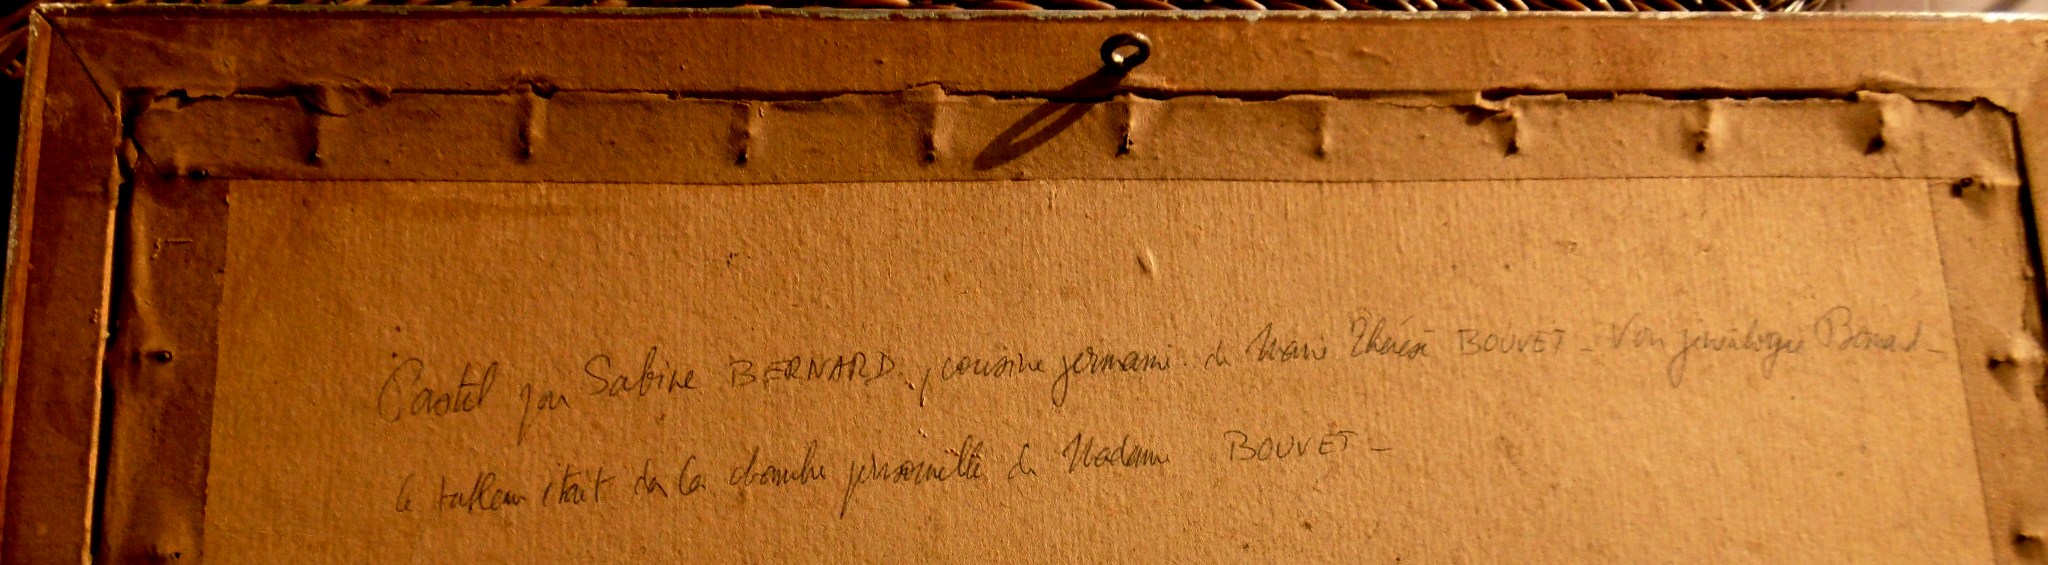 Pastel par Sabine BERNARD, cousine germaine de Marie Thérèse BOUVET - Voir généalogie Bernard -
Le tableau était ds la chambre personnelle de Madame BOUVET -